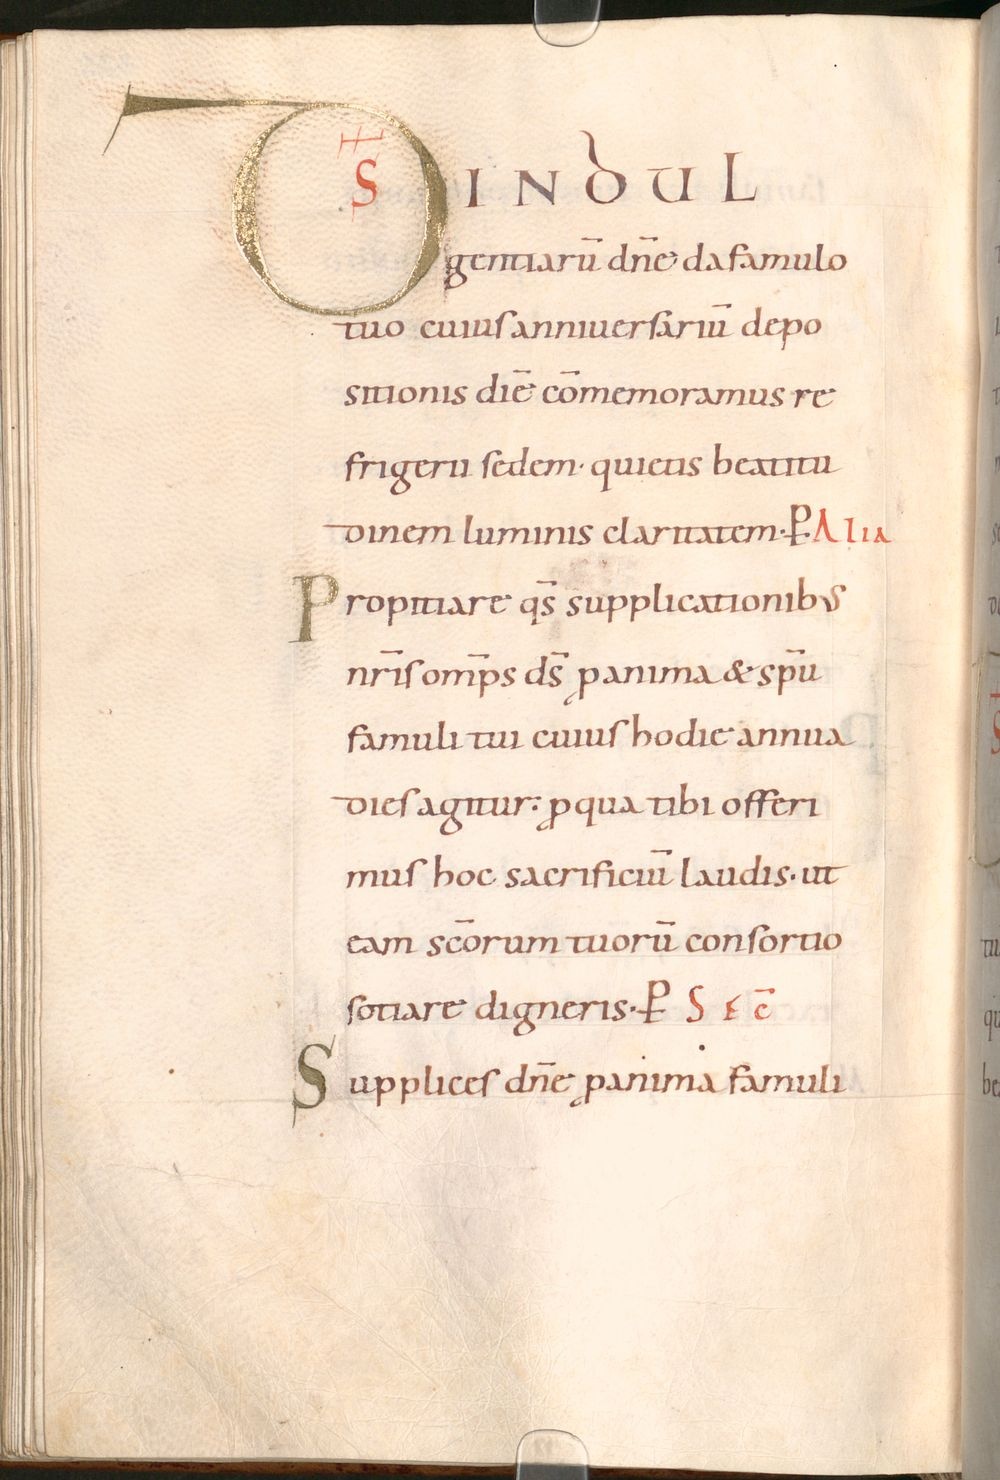 D̄S INDUL
gentiarū dn̄e da famulo
tuo cuius anniuersariū depo
sitionis diē cōmemoramus re
frigerii sedem· quietis beatitu
dinem luminis claritatem· P̱ Alia
Propitiare qs̄ supplicationibus
nr̄is omp̄s ds̄ ꝓ anima & sp̄u
famuli tui cuius hodie annua
dies agitur· ꝓ qua tibi offeri
mus hoc sacrificiū laudis· ut
eam sc̄orum tuorū consortio
sotiare digneris· P̱ SEC̄
Supplices dn̄e ꝓ anima famuli